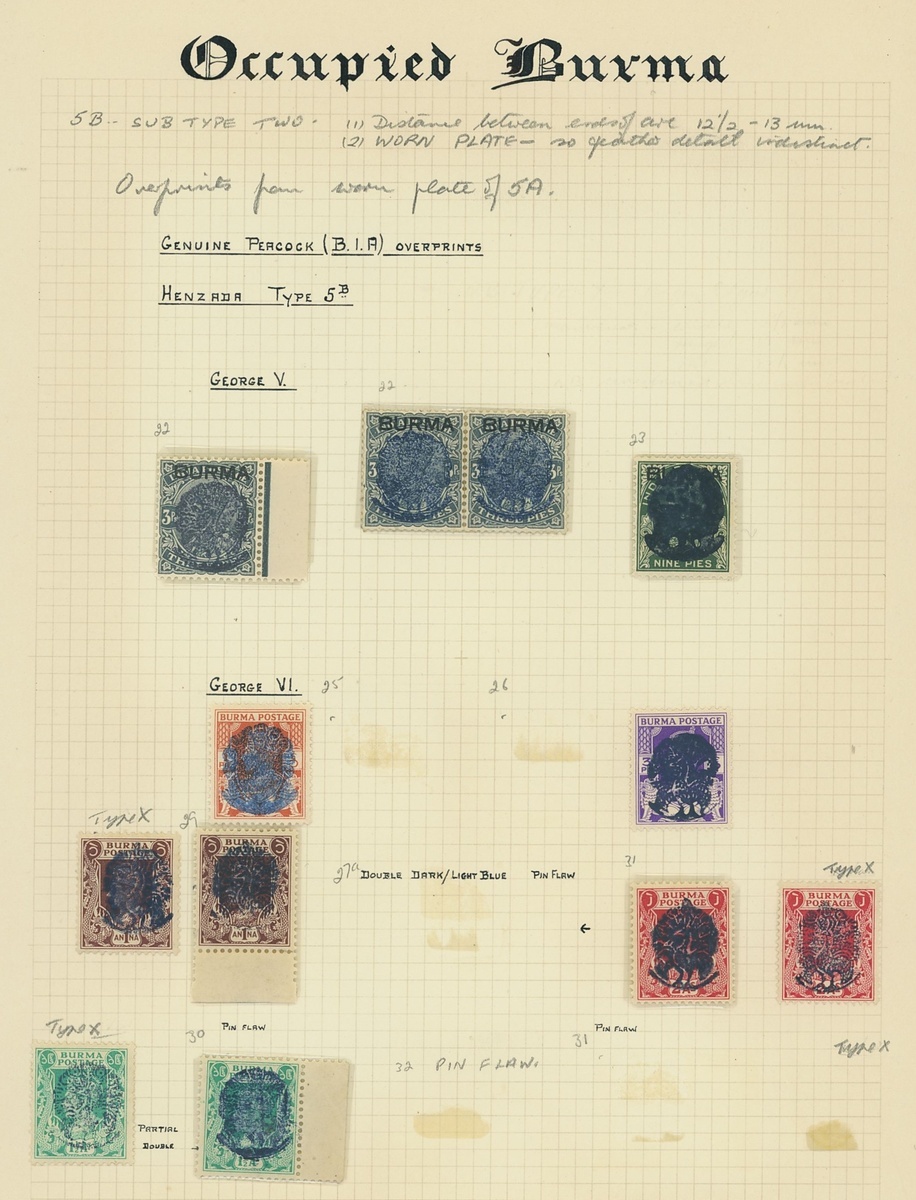 Occupied Burma
5B - SUB TYPE TWO. (1) Distance between ends of arc 12½ - 13 mm.
(2) WORN PLATE - so feather detail indistinct.
Overprints from worn plate of 5A.
GENUINE PEACOCK (B.I.A) OVERPRINTS
HENZADA TYPE 5B
GEORGE V.
22
22
23
BURMA
BURMA BURMA
3 3
THREE PIES
NINE PIES
GEORGE VI.
25
26
BURMA POSTAGE
BURMA POSTAGE
Type X
29
BURMA
POSTAGE
ANNA
BURMA
POSTAGE
ANNA
27a DOUBLE DARK/LIGHT BLUE PIN FLAW
31
Type X
←
BURMA
POSTAGE
2 AS
BURMA
POSTAGE
Type X
30
PIN FLAW
32 PIN FLAW.
31
PIN FLAW
Type X
BURMA
POSTAGE
1½A
PARTIAL
DOUBLE →
BURMA
POSTAGE
1½A